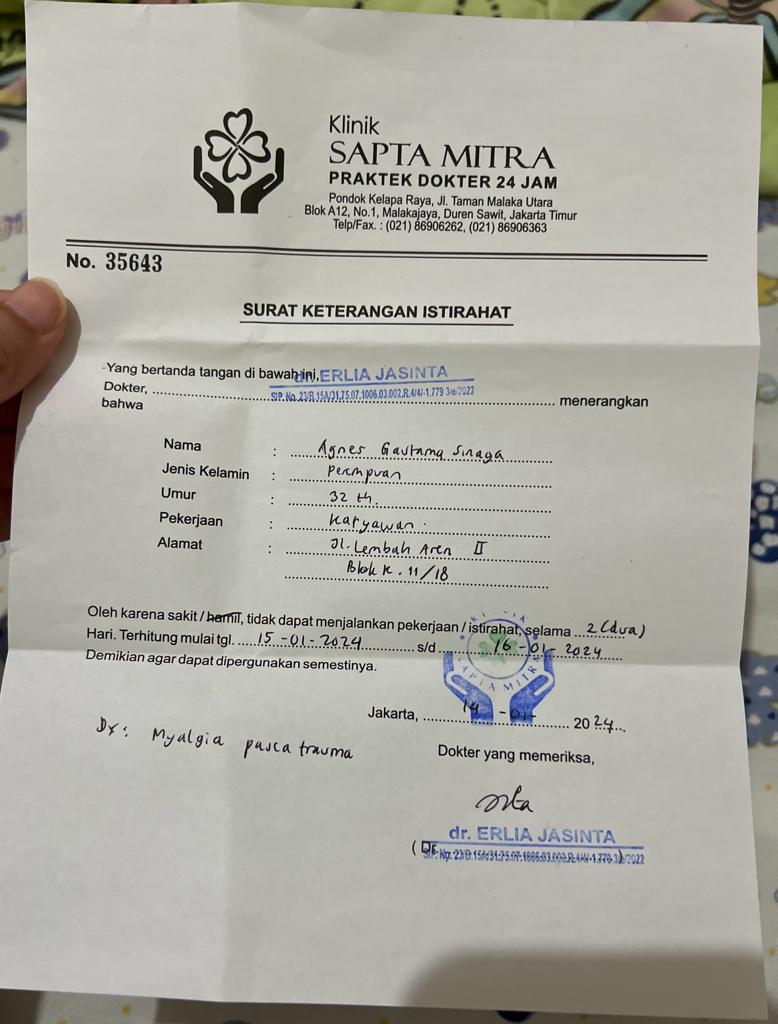 Klinik
SAPTA MITRA
PRAKTEK DOKTER 24 JAM
Pondok Kelapa Raya, Jl. Taman Malaka Utara
Blok A12, No.1, Malakajaya, Duren Sawit, Jakarta Timur
Telp/Fax. : (021) 86906262, (021) 86906363
No. 35643
SURAT KETERANGAN ISTIRAHAT
Yang bertanda tangan di bawah ini, dr. ERLIA JASINTA
Dokter, menerangkan
bahwa
Nama : Agnes Gautama Sinaga
Jenis Kelamin : perempuan
Umur : 32 th.
Pekerjaan : Karyawan.
Alamat : Jl. Lembah Aren II
Blok K. 11/18
Oleh karena sakit / hamil, tidak dapat menjalankan pekerjaan / istirahat, selama 2 (dua)
Hari. Terhitung mulai tgl. 15-01-2024 s/d 16-01-2024
Demikian agar dapat dipergunakan semestinya.
KLINIK
SAPTA MITRA
Jakarta, 14-01- 2024
Dx: Myalgia pasca trauma
Dokter yang memeriksa,
dr. ERLIA JASINTA
( Dr. )